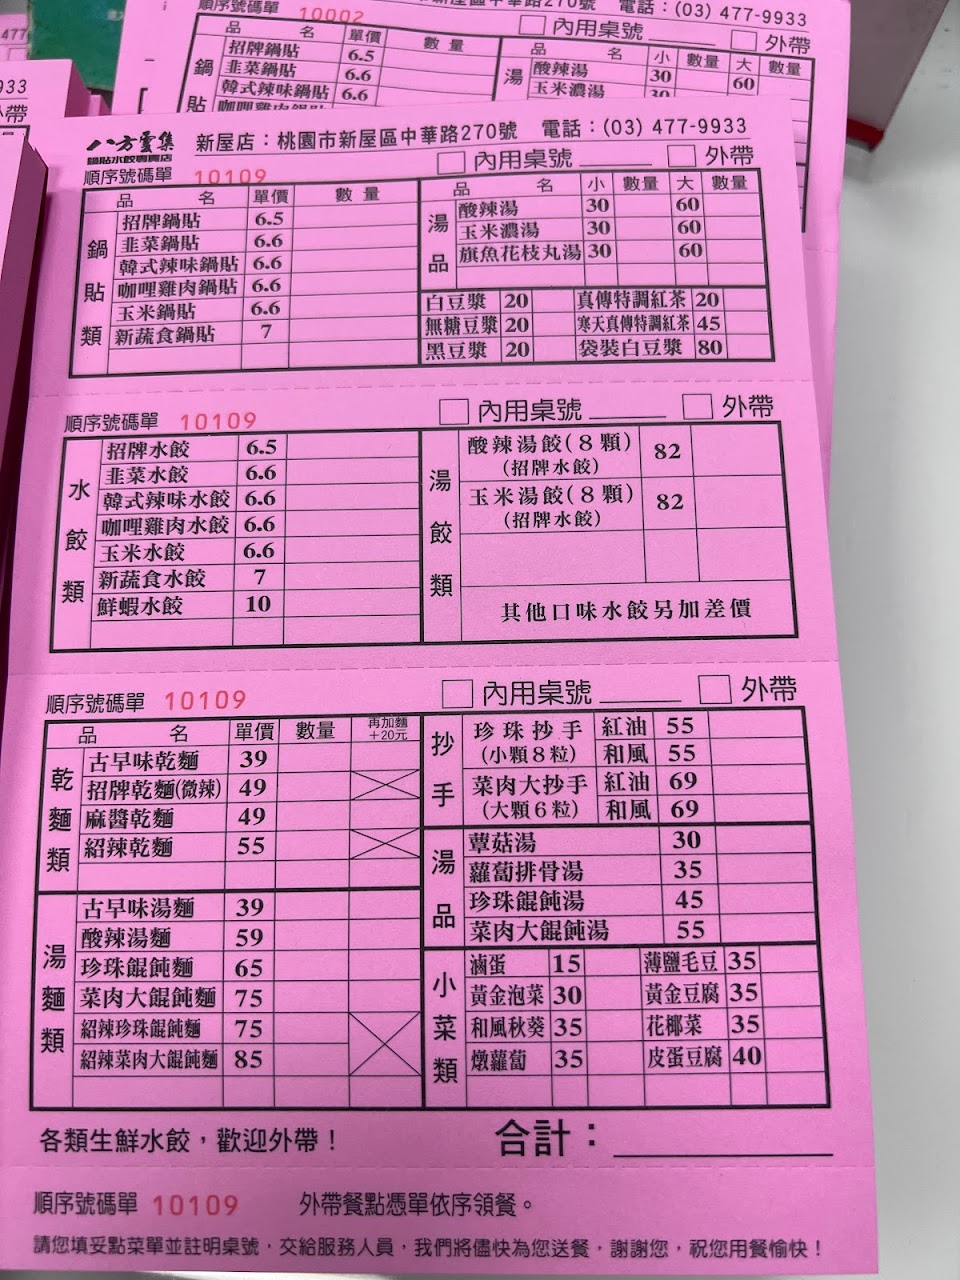 順序號碼單 10002
新屋區中華路270號 電話：(03) 477-9933
內用桌號 外帶
品 名 單價 數量
招牌鍋貼 6.5
韭菜鍋貼 6.6
韓式辣味鍋貼 6.6
咖哩雞肉鍋貼
鍋
貼
品 名 小 數量 大 數量
湯
酸辣湯 30 60
玉米濃湯 30
477
933
外帶
八方雲集
鍋貼水餃專賣店
新屋店：桃園市新屋區中華路270號 電話：(03) 477-9933
順序號碼單 10109 內用桌號 外帶
鍋貼類
品 名 單價 數量
招牌鍋貼 6.5
韭菜鍋貼 6.6
韓式辣味鍋貼 6.6
咖哩雞肉鍋貼 6.6
玉米鍋貼 6.6
新蔬食鍋貼 7
湯品
品 名 小 數量 大 數量
酸辣湯 30 60
玉米濃湯 30 60
旗魚花枝丸湯 30 60
白豆漿 20 真傳特調紅茶 20
無糖豆漿 20 寒天真傳特調紅茶 45
黑豆漿 20 袋裝白豆漿 80
順序號碼單 10109 內用桌號 外帶
水餃類
招牌水餃 6.5
韭菜水餃 6.6
韓式辣味水餃 6.6
咖哩雞肉水餃 6.6
玉米水餃 6.6
新蔬食水餃 7
鮮蝦水餃 10
湯餃類
酸辣湯餃(8顆) 82
(招牌水餃)
玉米湯餃(8顆) 82
(招牌水餃)
其他口味水餃另加差價
順序號碼單 10109 內用桌號 外帶
品 名 單價 數量 再加麵+20元
乾麵類
古早味乾麵 39
招牌乾麵(微辣) 49
麻醬乾麵 49
紹辣乾麵 55
湯麵類
古早味湯麵 39
酸辣湯麵 59
珍珠餛飩麵 65
菜肉大餛飩麵 75
紹辣珍珠餛飩麵 75
紹辣菜肉大餛飩麵 85
抄手
珍珠抄手 紅油 55
(小顆8粒) 和風 55
菜肉大抄手 紅油 69
(大顆6粒) 和風 69
湯品
蕈菇湯 30
蘿蔔排骨湯 35
珍珠餛飩湯 45
菜肉大餛飩湯 55
小菜類
滷蛋 15 薄鹽毛豆 35
黃金泡菜 30 黃金豆腐 35
和風秋葵 35 花椰菜 35
燉蘿蔔 35 皮蛋豆腐 40
各類生鮮水餃，歡迎外帶！ 合計：
順序號碼單 10109 外帶餐點憑單依序領餐。
請您填妥點菜單並註明桌號，交給服務人員，我們將儘快為您送餐，謝謝您，祝您用餐愉快！